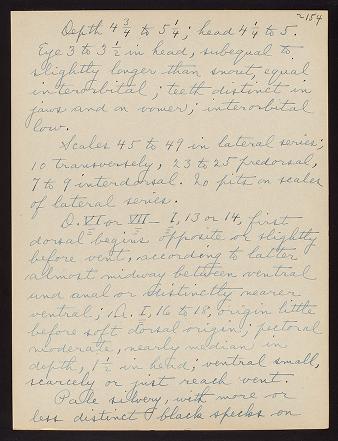 2154
Depth 4 3/4 to 5 1/4; head 4 1/4 to 5.
Eye 3 to 3 1/2 in head, subequal to
slightly longer than snout, equal
interorbital; teeth distinct in
jaws and on vomer; interorbital
low.
Scales 45 to 49 in lateral series;
10 transversely, 23 to 25 predorsal,
7 to 9 interdorsal. No pits on scales
of lateral series.
D. VI or VII – I, 13 or 14, first
dorsal begins opposite or slightly
before vent, according to latter
almost midway between ventral
and anal or distinctly nearer
ventral; A. I, 16 to 18, origin little
before soft dorsal origin; pectoral
moderate, nearly median in
depth, 1 1/2 in head; ventral small,
scarcely or just reach vent.
Pale silvery, with more or
less distinct black specks on